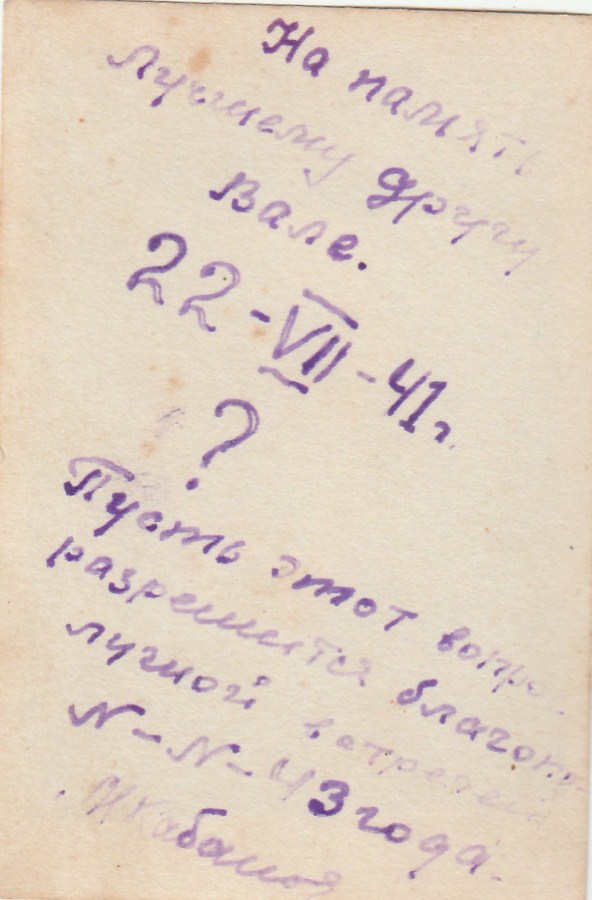 На память
лучшему другу
Вале.
22-VII-41г.
?
Пусть этот вопро-
разрешится благопо-
лучной встречей
N-N-43 года.